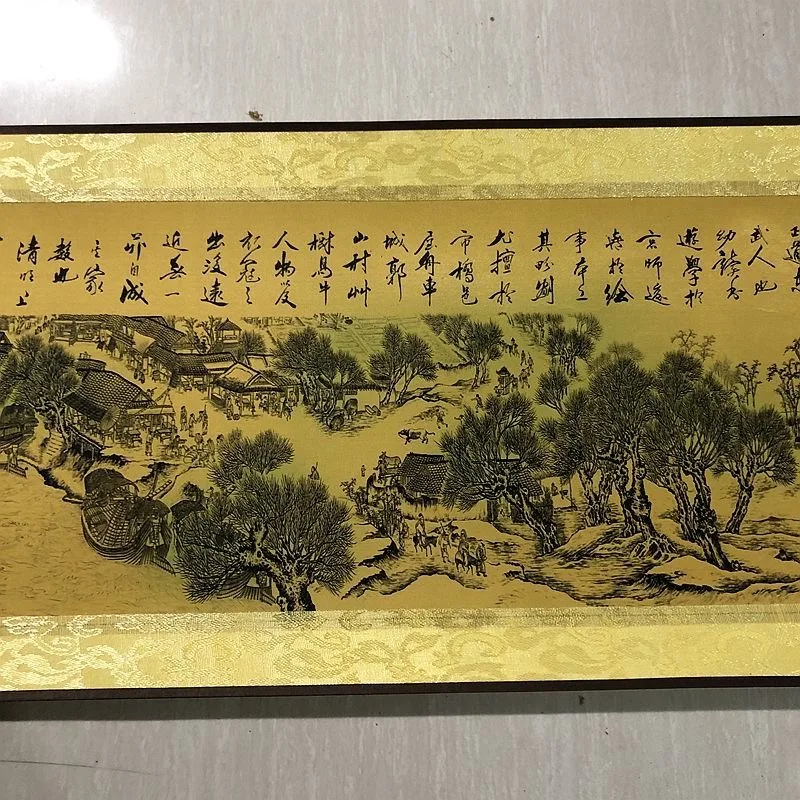 正道東
武人也
幼讀書
遊學於
京師後
於繪
事本工
其界劃
尤擅於
市橋邑
屋舟車
城郭
山村艸
樹馬牛
人物及
衣冠之
出沒遠
近無一
自成
家
數也
清明上